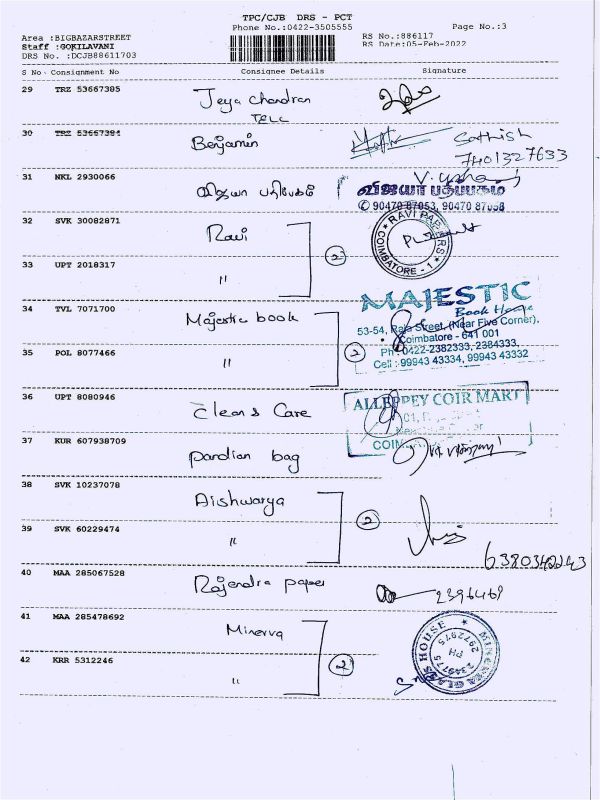 TPC/CJB DRS - PCT
Phone No.:0422-3505555
Page No.:3
Area :BIGBAZARSTREET
Staff :GOKILAVANI
DRS No. :DCJB88611703
RS No.:886117
RS Date:05-Feb-2022
S No Consignment No Consignee Details Signature
29 TRZ 53667385 Jeya Chandran
TELC
30 TRZ 53667384 Benjamin Sathish
7401327633
31 NKL 2930066 விஜயா பதிப்பகம்
விஜயா பதிப்பகம்
✆ 90470 87053, 90470 87058
32 SVK 30082871 Ravi
RAVI PAPERS
COIMBATORE - 1
2
33 UPT 2018317 "
34 TVL 7071700 Majestic book
MAJESTIC
Book House
53-54, Raja Street, (Near Five Corner),
Coimbatore - 641 001
Ph : 0422-2382333, 2384333,
Cell : 99943 43334, 99943 43332
2
35 POL 8077466 "
36 UPT 8080946 Clean & Care
ALLEPPEY COIR MART
37 KUR 607938709 Pandian bag
38 SVK 10237078 Aishwarya
2
39 SVK 60229474 "
6380342243
40 MAA 285067528 Rajendra paper 2396469
41 MAA 285478692 Minerva
MINERVA GLASS HOUSE
PH
2349775
2972975
2
42 KRR 5312246 "